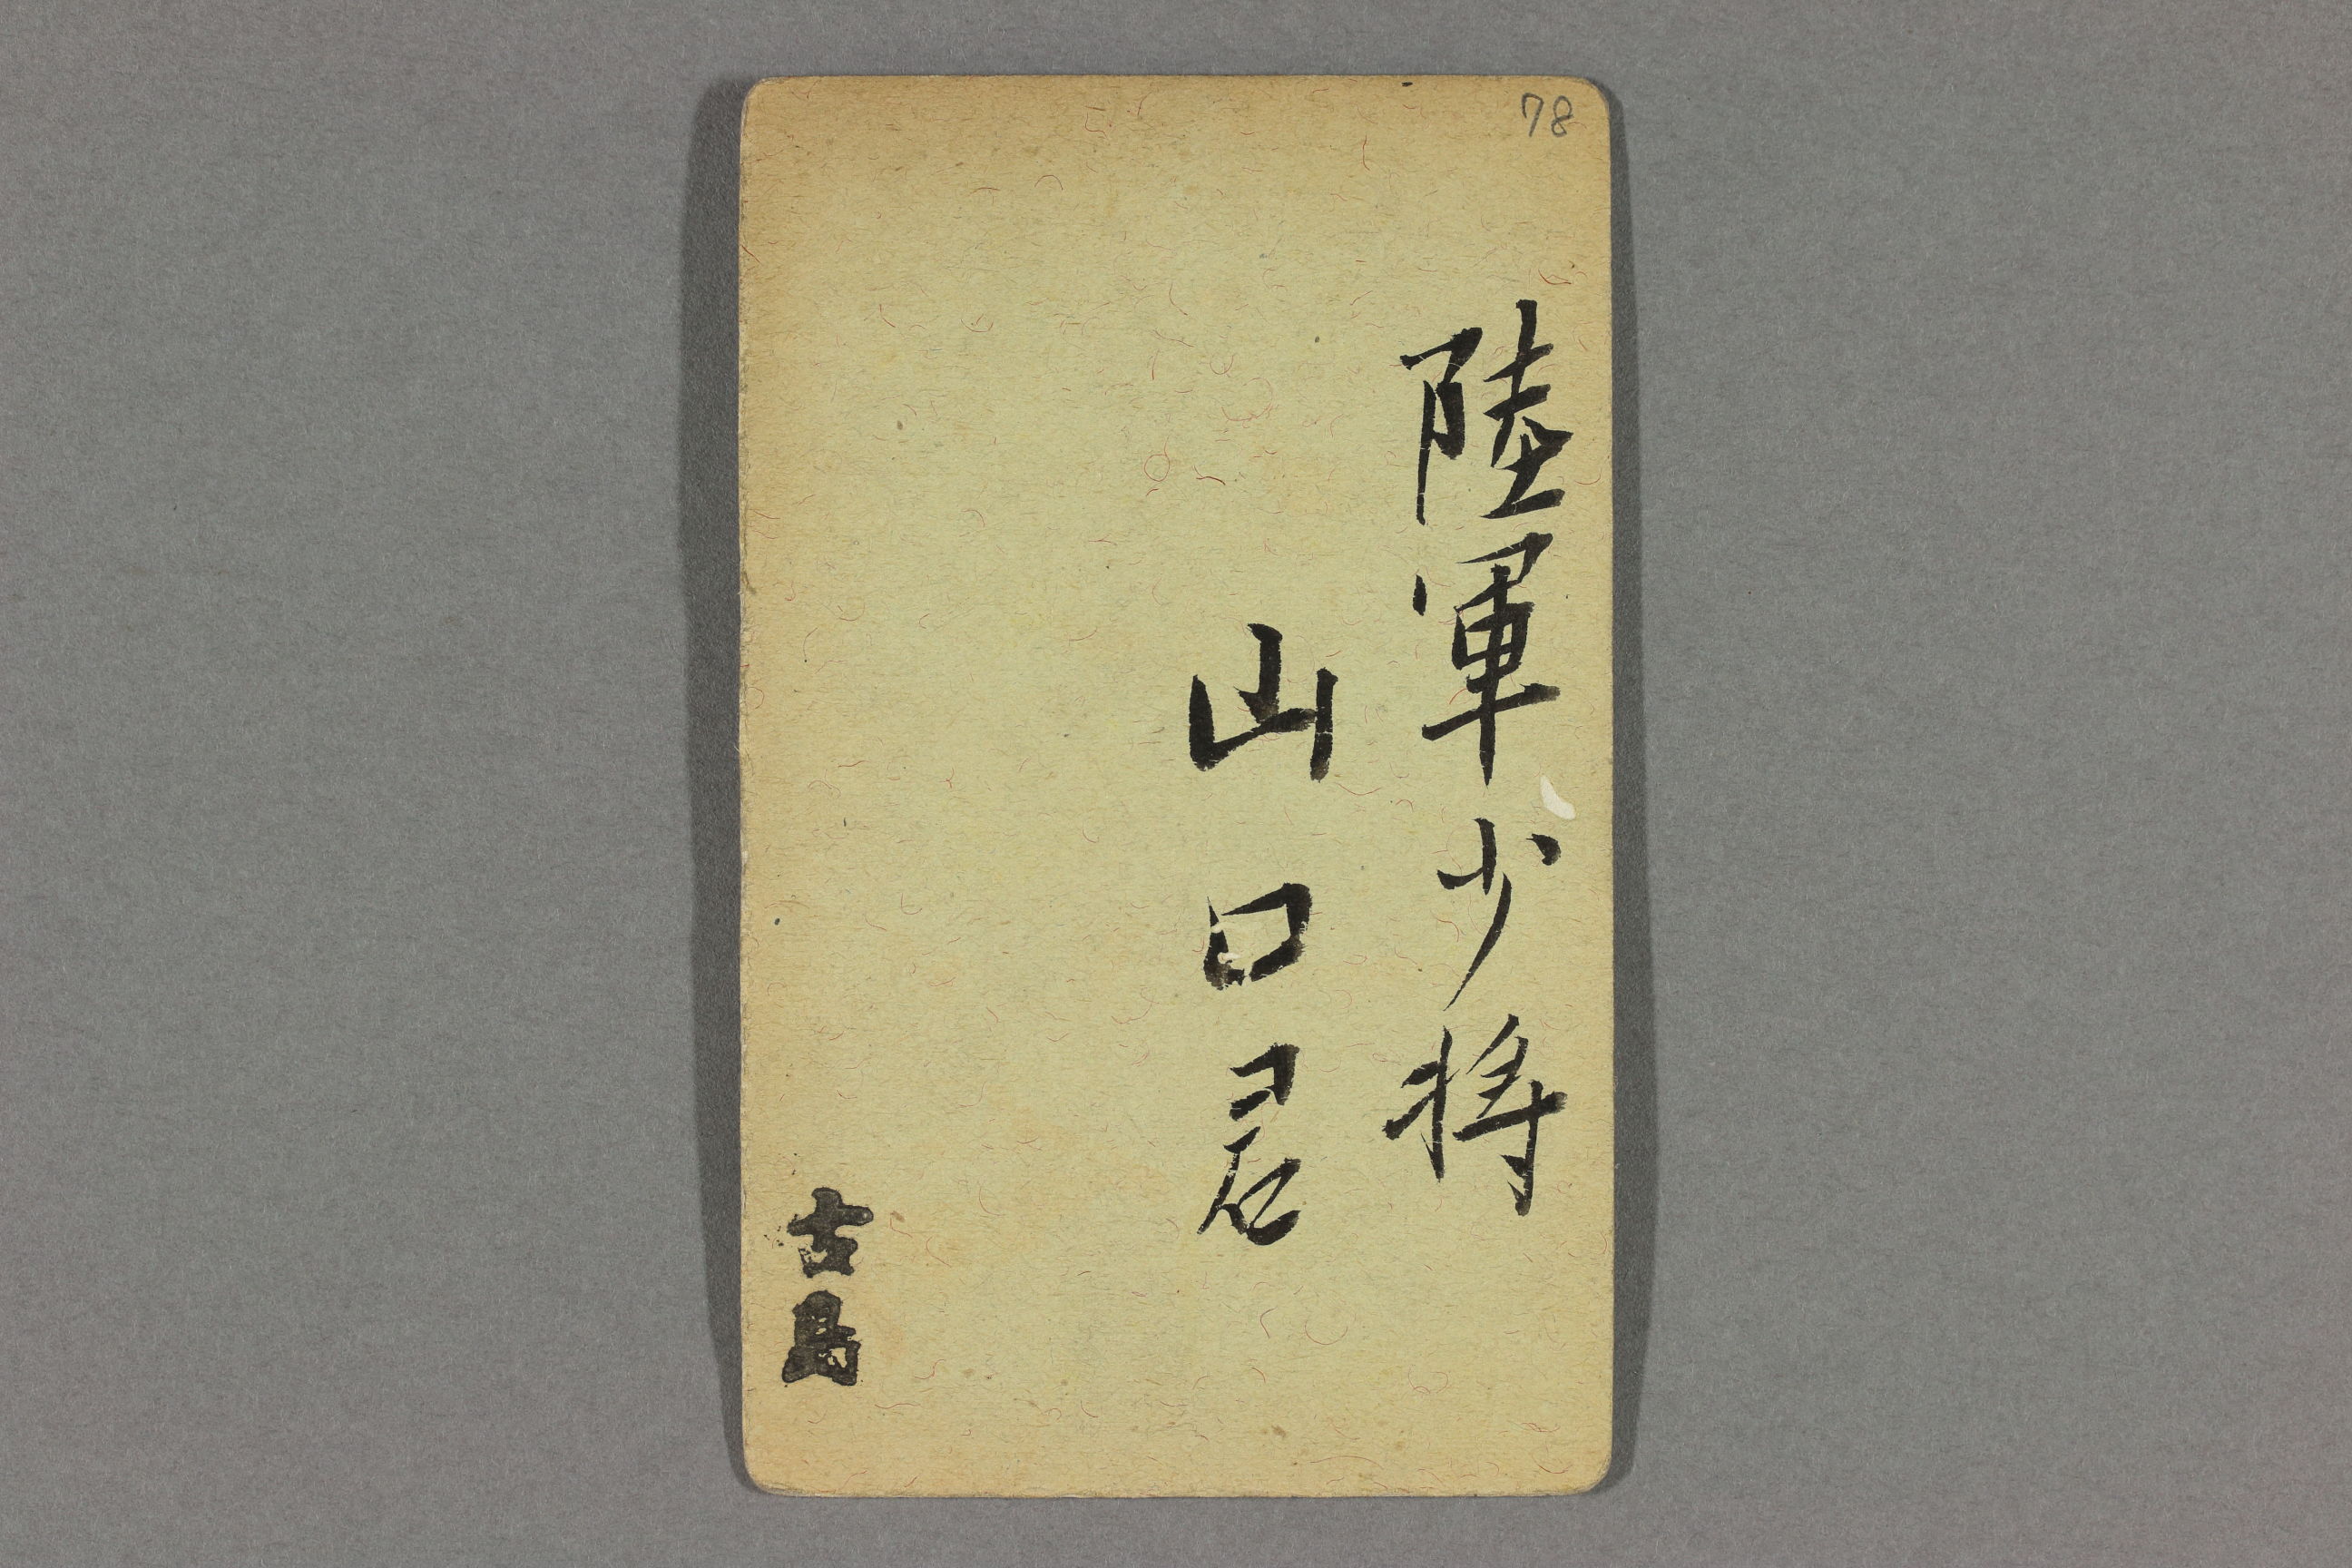 78
陸軍少将
山口君
古島